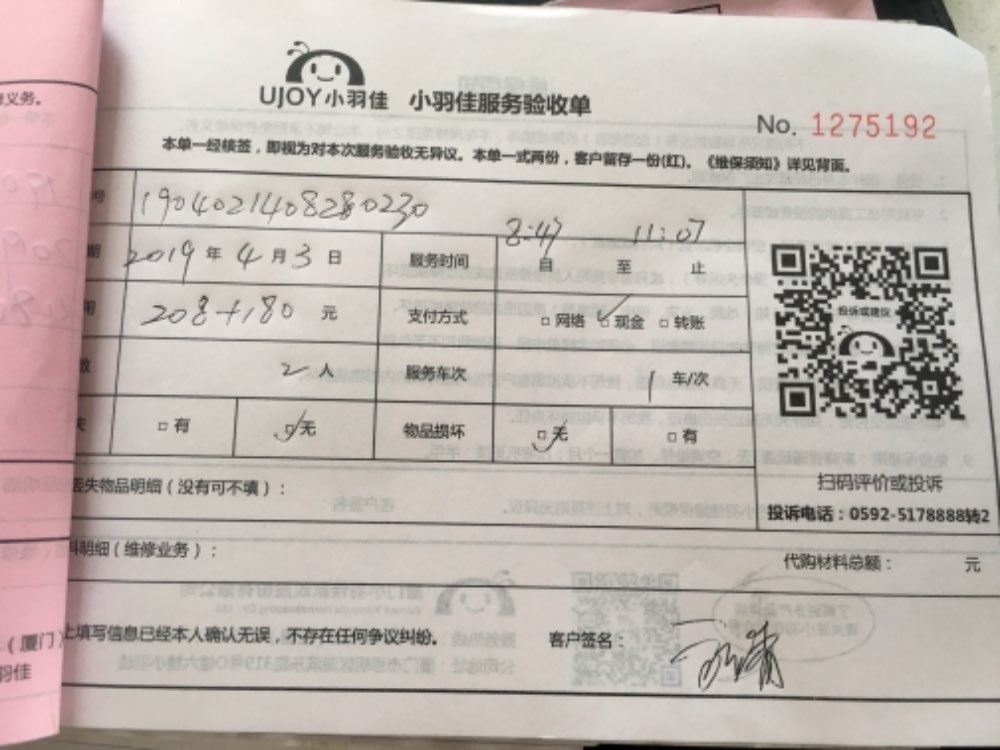 义务。
UJOY小羽佳 小羽佳服务验收单
No. 1275192
本单一经核签，即视为对本次服务验收无异议。本单一式两份，客户留存一份(红)。《维保须知》详见背面。
号 1904021408280230
期 2019 年 4 月 3 日 服务时间 8:47 自 至 11:07 止
用 208+180 元 支付方式 □网络 □现金 □转账
数 2 人 服务车次 1 车/次
失 □有 □无 物品损坏 □无 □有
投诉或建议
扫码评价或投诉
投诉电话：0592-5178888转2
丢失物品明细（没有可不填）：
料明细（维修业务）： 代购材料总额： 元
上填写信息已经本人确认无误，不存在任何争议纠纷。 客户签名：
（厦门）
羽佳